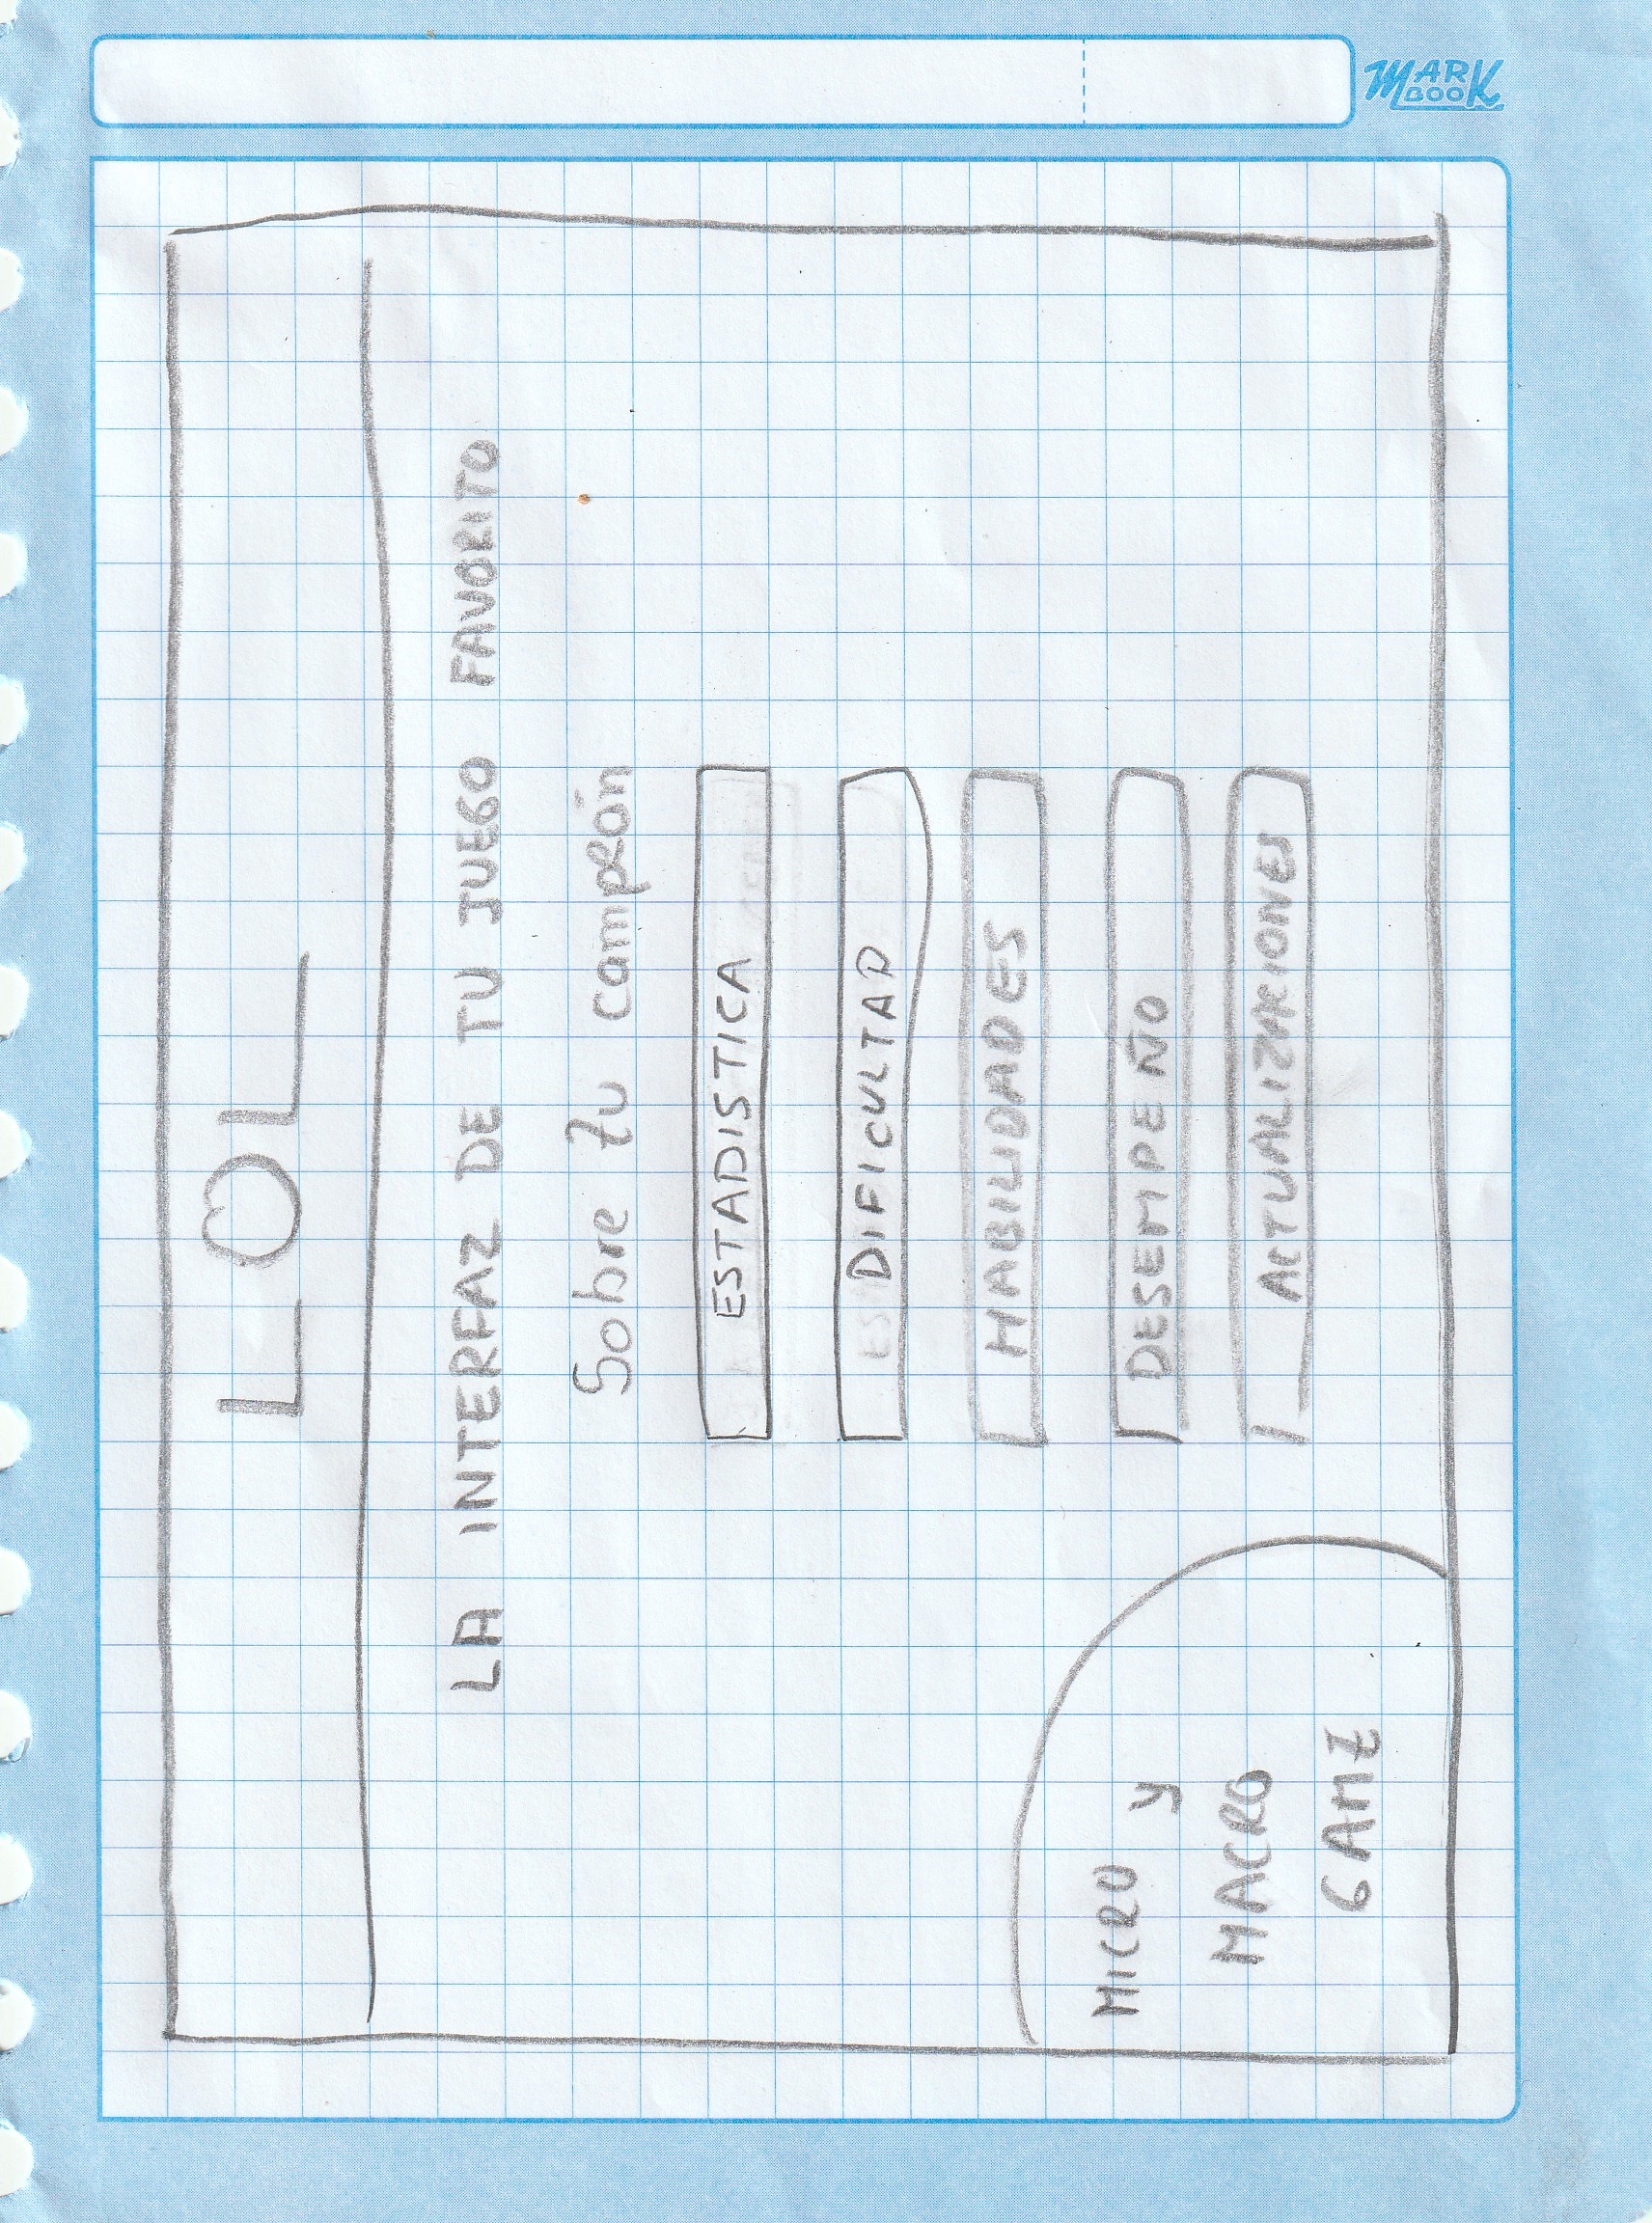 LOL
LA INTERFAZ DE TU JUEGO FAVORITO
Sobre tu campeón
ESTADISTICA
DIFICULTAD
HABILIDADES
DESEMPEÑO
ACTUALIZACIONES
MICRO
y
MACRO
GAME
MARK
BOOK